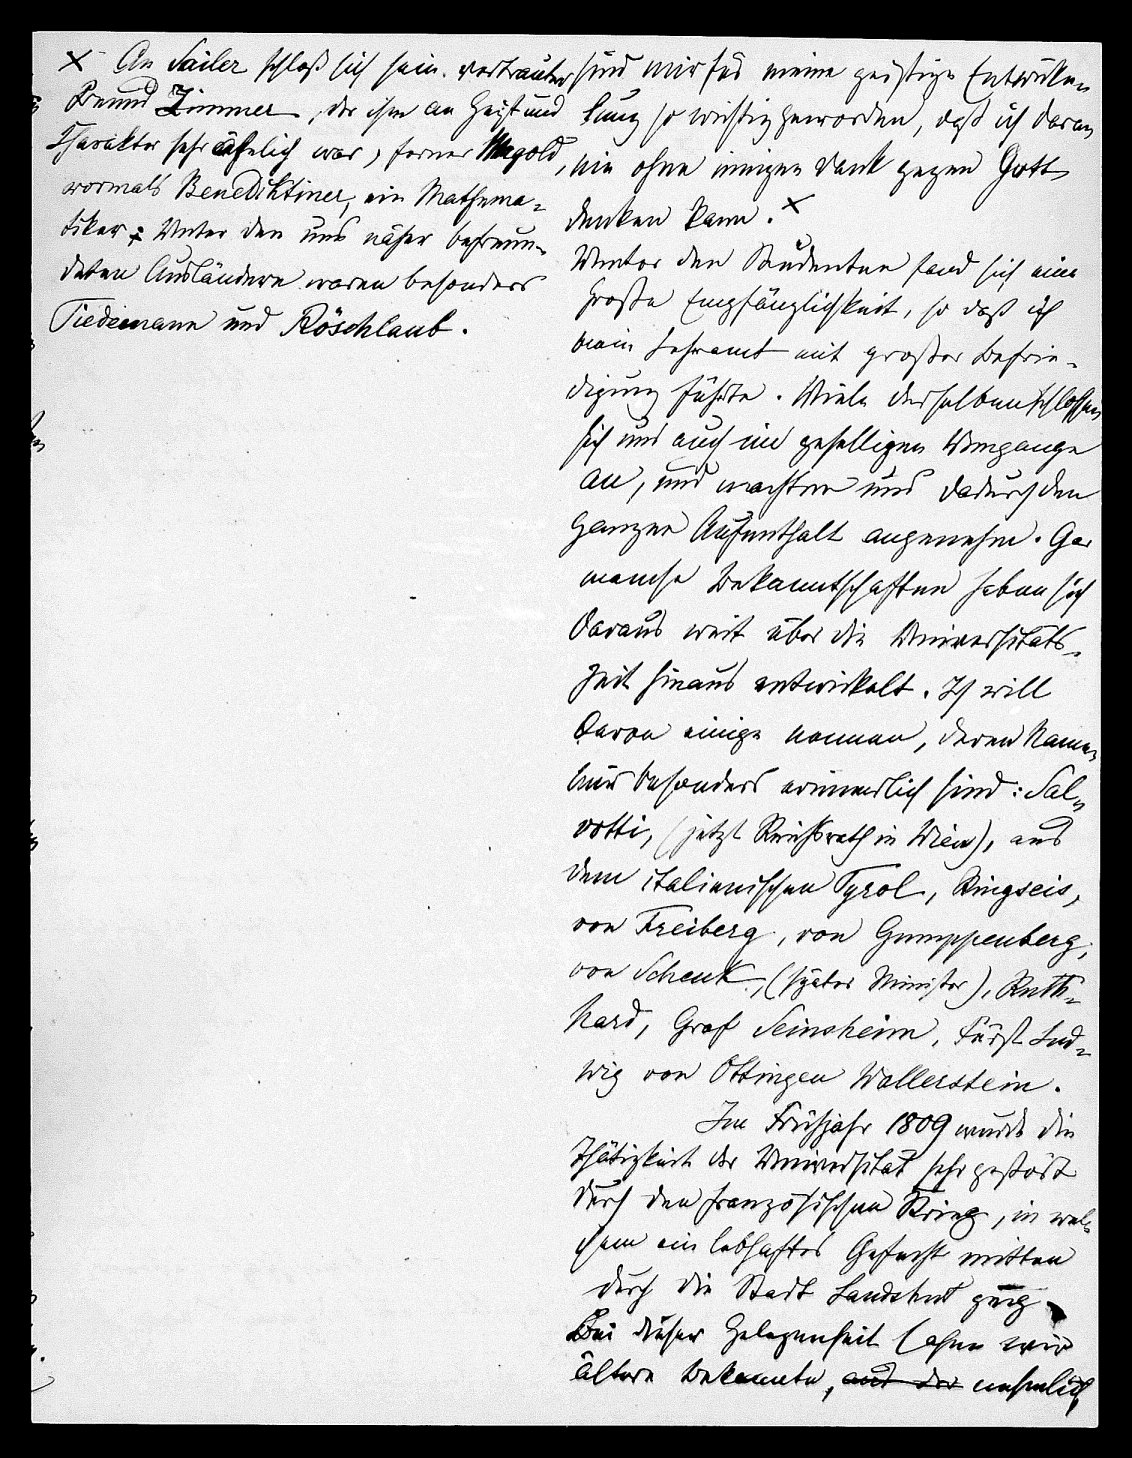 × An Sailer schloß sich sein vertrauter
Freund Zimmer, der ihm an Geist und
Charakter sehr ähnlich war, ferner Magold,
vormals Benediktiner, ein Mathema-
tiker; Unter den uns näher befreun-
deten Ausländern waren besonders
Tiedemann und Röschlaub.
sind mir für meine geistige Entwicke-
lung so wichtig geworden, daß ich daran
nie ohne innigen Dank gegen Gott
denken kann. ×
Unter den Studenten fand sich eine
große Empfänglichkeit, so daß ich
mein Lehramt mit großer Befrie-
digung führte. Viele derselben schlossen
sich uns auch im geselligen Umgange
an, und machten uns dadurch den
ganzen Aufenthalt angenehm. Gar
manche Bekanntschaften haben sich
daraus weit über die Universitäts-
zeit hinaus entwickelt. Ich will
davon einige nennen, deren Namen
mir besonders erinnerlich sind: Sal-
votti, (jetzt Reichsrath in Wien), aus
dem italienischen Tyrol, Ringseis,
von Freiberg, von Gumppenberg,
von Schenk, (später Minister), Ruth-
hard, Graf Seinsheim, Fürst Lud-
wig von Öttingen Wallerstein.
Im Frühjahr 1809 wurde die
Thätigkeit der Universität sehr gestört
durch den französischen Krieg, in wel-
chem ein lebhaftes Gefecht mitten
durch die Stadt Landshut ging.
Bei dieser Gelegenheit sahen wir
ältere Bekannte, aus der nehmlich